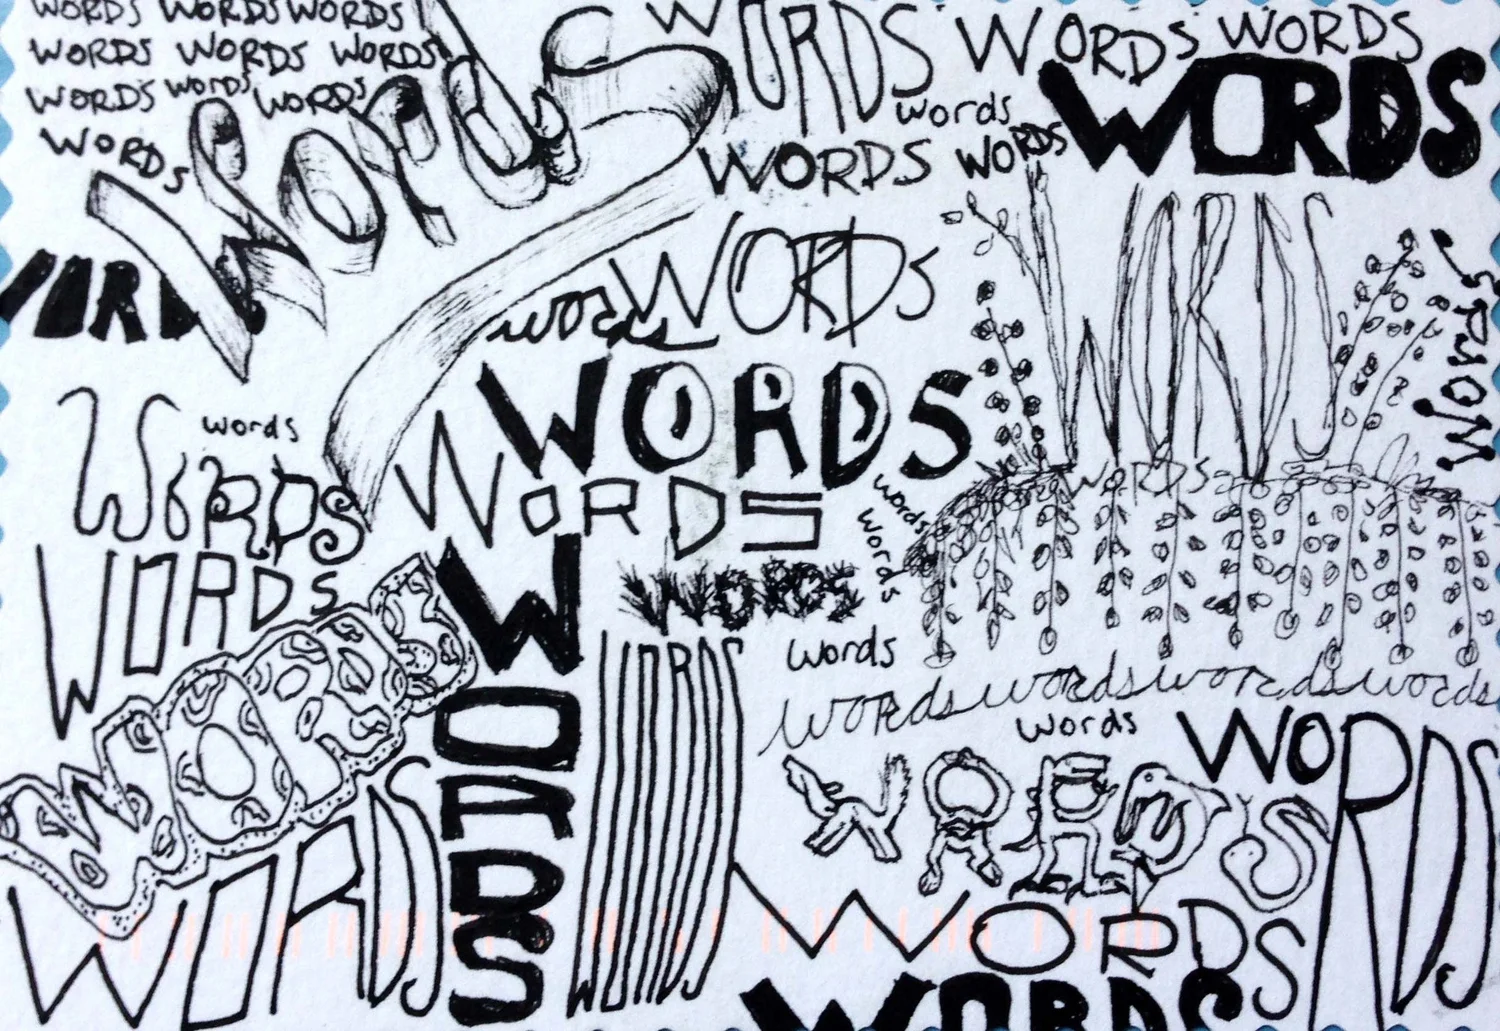 WORDS WORDS WORDS
WORDS WORDS WORDS
WORDS words WORDS
WORDS
Words
WORDS WORDS WORDS
words WORDS
WORDS WORDS
WORDS
WORDS
words WORDS
WORDS
words
WORDS
WORDS
WORDS
WORDS
WORDS
words
words
WORDS
WORDS
WORDS
WORDS
WORDS
words
WORDS
words words words words
words
WORDS
WORDS
WORDS
WORDS
WORDS
WORDS